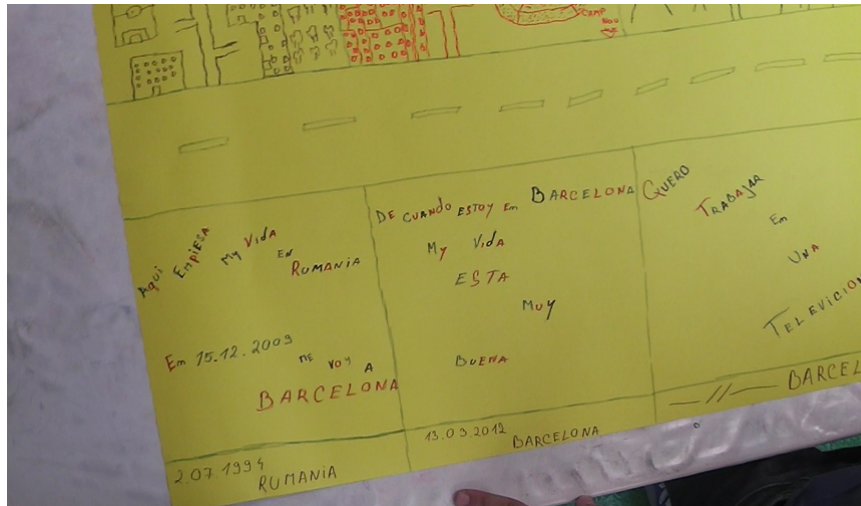 CAMP
NOU
Aqui EMPIESA My VidA EN RUMANiA
Em 15.12.2009 ME VOY A
BARCELONA
2.07.1994
RUMANiA
DE CUANdO ESTOY Em BARCELONA
My VidA
ESTA
MUY
BUENA
13.09.2012 BARCELONA
QUERO
TRABAJAR
Em
UNA
TELEVICION
BARCEL